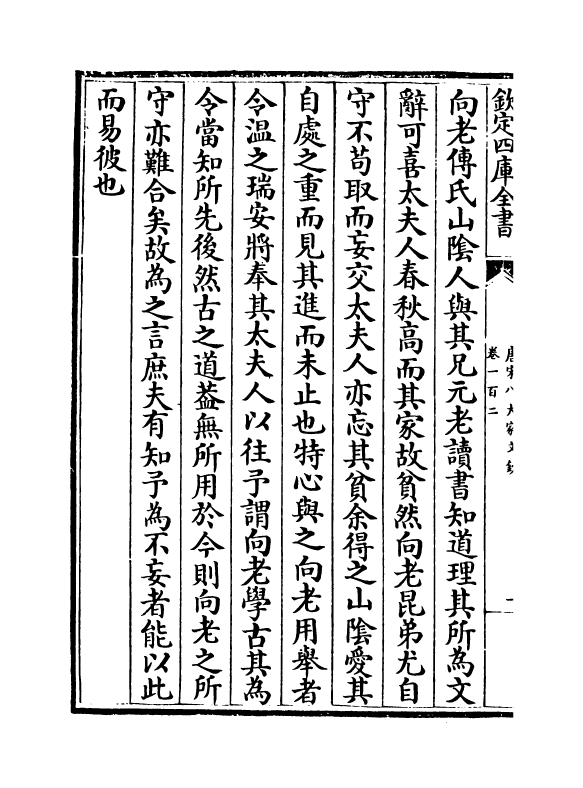 欽定四庫全書
唐宋八大家文鈔
卷一百二
向老傅氏山隂人與其兄元老讀書知道理其所為文
辭可喜太夫人春秋高而其家故貧然向老昆弟尤自
守不苟取而妄交太夫人亦忘其貧余得之山隂愛其
自處之重而見其進而未止也特心與之向老用舉者
令温之瑞安將奉其太夫人以往予謂向老學古其為
令當知所先後然古之道葢無所用於今則向老之所
守亦難合矣故為之言庶夫有知予為不妄者能以此
而易彼也